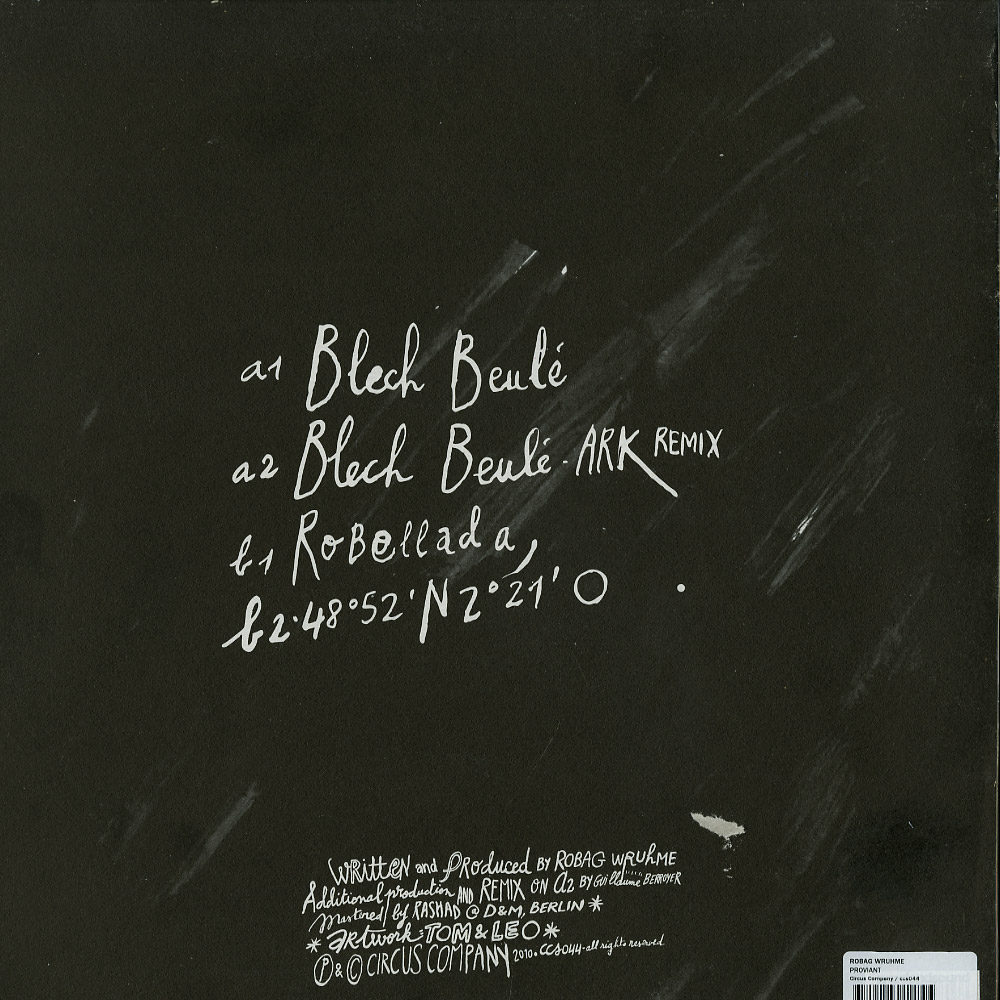 a1 Blech Beulé
a2 Blech Beulé - ARK REMIX
b1 RoBellada,
b2·48°52'N2°21'O
WRittEN and PRoduced BY ROBAG WRUHME
Additional production AND REMIX ON A2 BY Guilldume BERROYER
Mastered by RASHAD @ D&M, BERLIN *
* ARtwork: TOM & LEO *
Ⓟ & © CIRCUS COMPANY 2010. CCS044-all rights reserved
ROBAG WRUHME
PROVIANT
Circus Company / ccs044